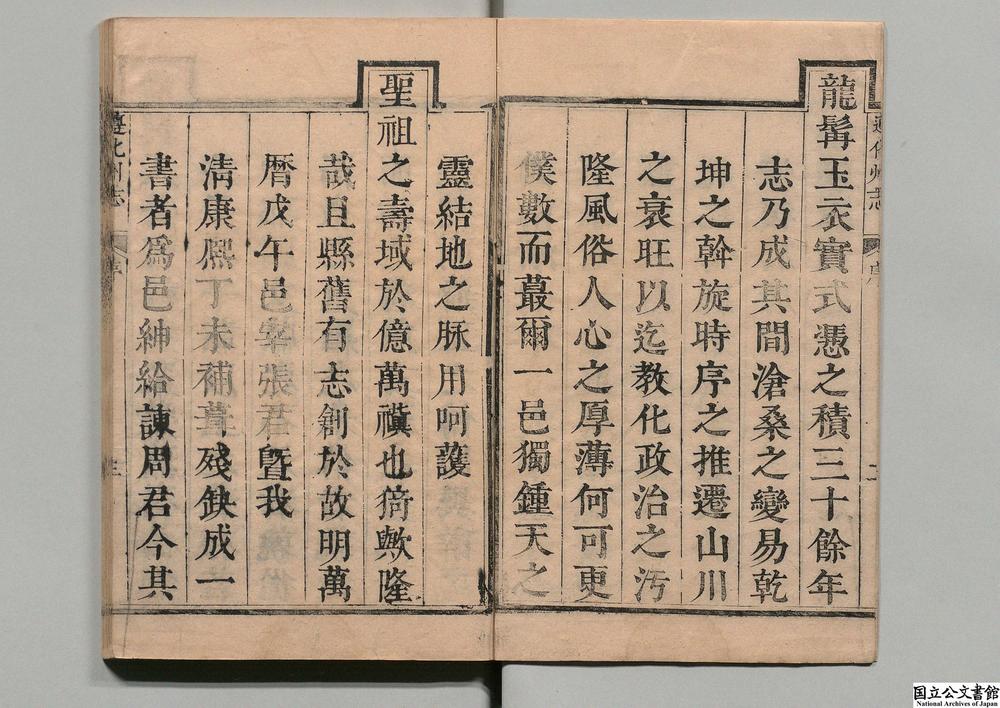 龍髯玉衣實式憑之積三十餘年
志乃成其間滄桑之變易乾
坤之斡旋時序之推遷山川
之衰旺以迄教化政治之汚
隆風俗人心之厚薄何可更
僕數而蕞爾一邑獨鍾天之
靈結地之脉用呵護
聖祖之壽域於億萬禩也猗歟隆
哉且縣舊有志創於故明萬
曆戊午邑宰張君曁我
淸康熈丁未補葺殘缺成一
書者爲邑紳給諫周君今其
遵化州志
国立公文書館
National Archives of Japan